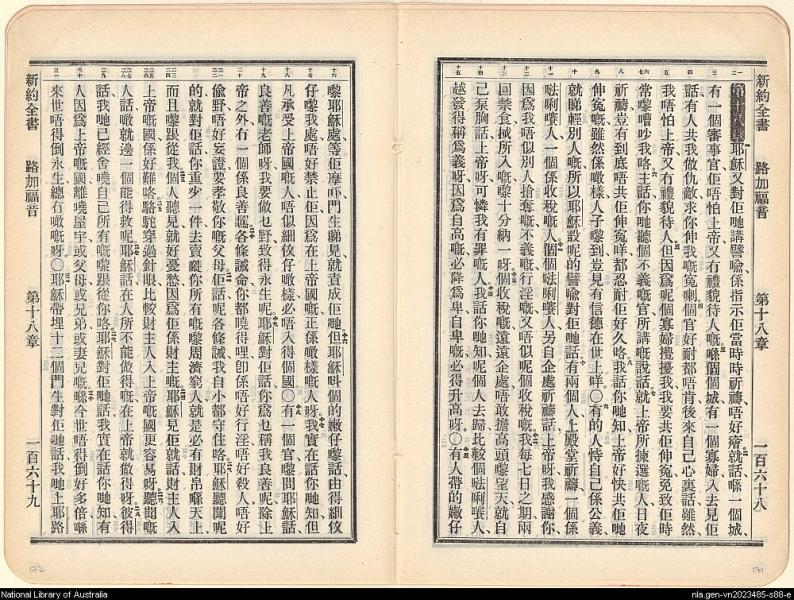 新約全書 路加福音 第十八章 一百六十八
耶穌又對佢哋講譬喻係指示佢當時時祈禱唔好 就話喺一個城、
有一個審事官佢唔怕上帝又冇禮貌待人嘅喺個個城有一個寡婦入去見佢
話有人共我做仇敵求你伸我嘅寃喇個官好耐都唔肯後來自己心裏話雖然
我唔怕上帝又冇禮貌待人但因爲呢個寡婦攪擾我我要共佢伸寃免致佢時
常嚟嘈吵我咯主話你哋聽個不義嘅官所講嘅說話就上帝所揀選嘅人日夜
祈禱豈有到底唔共佢伸寃咩都忍耐佢好久咯我話你哋知上帝好快共佢哋
伸寃嘅雖然係噉樣人子嚟到豈見有信德在世上咩〇有的人恃自己係公義
就睇輕別人嘅所以耶穌設呢的譬喻對佢哋話有兩個人上殿堂祈禱一個係
𠵽唎嚷人一個係收稅嘅人個個𠵽唎嚷人另自企處祈禱話上帝呀我感謝你
因爲我唔似別人搶奪嘅不義嘅行淫嘅又唔似呢個收稅嘅我每七日之期兩
回禁食㨢所入嘅嚟十分納一呀個收稅嘅遠遠企處唔敢擔高頭嚟望天就自
己泵胸話上帝呀可憐我有罪嘅人我話你哋知呢個人去歸比較個𠵽唎嚷人
越發得稱爲義呀因爲自高嘅必降爲卑自卑嘅必得升高呀〇有人帶的嫩仔
嚟耶穌處等佢摩吓門生睇見就責成佢哋但耶穌呌個的嫩仔嚟話由得細蚊
仔嚟我處唔好禁止佢因爲在上帝國嘅正係噉樣嘅人呀我實在話你哋知但
凡承受上帝國嘅人唔似細蚊仔噉樣必唔入得個國〇有一個官嚟問耶穌話
良善嘅老師呀我要做乜野致得永生呢耶穌對佢話你爲乜稱我良善呢除上
帝之外有一個係良善嘅各條誡命你都曉得哩卽係唔好行淫唔好殺人唔好
偷野唔好妄證要孝敬你嘅父母佢話呢各條誡我自小都守住咯耶穌聽聞呢
的就對佢話你重少一件去賣嗮你所有嘅嚟周濟窮人就是必有財帛喺天上
而且嚟跟從我個人聽見就好憂愁因爲佢係財主嘅耶穌見佢就話財主人入
上帝嘅國係好難咯駱駝穿過針眼比較財主入上帝嘅國更容易呀聽聞嘅
人話噉就邊一個能得救呢耶穌話在人所不能做得嘅在上帝就做得呀彼得
話我哋已經舍嘵自己所有嘅嚟跟從你咯耶穌對佢哋話我實在話你哋知有
人因爲上帝嘅國離嘵屋宇或父母或兄弟或妻兒嘅喺今世唔得倒好多倍喺
來世唔得倒永生總冇噉嘅呀〇耶穌帶埋十二個門生對佢哋話我哋上耶路
新約全書 路加福音 第十八章 一百六十九
National Library of Australia
nla.gen-vn2023485-s88-e